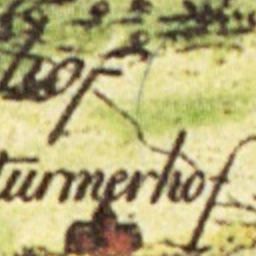 hof
turmerhof